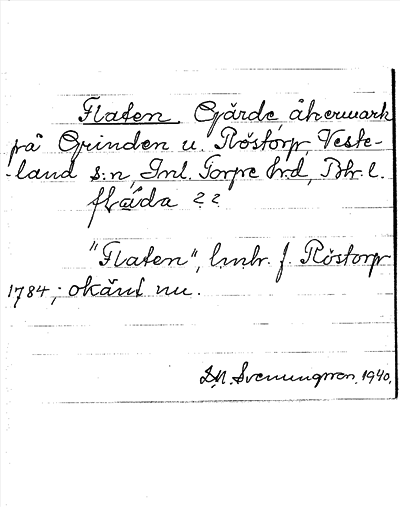 Flaten. Gärde, åkermark
på Grinden u. Röstorp, Veste-
-land s:n, Inl. Torpe hrd, Bhr. l.
flåda ??
"Flaten", lmhr. f. Röstorp
1784; okänt nu.
D.N. Svenungsson, 1940.